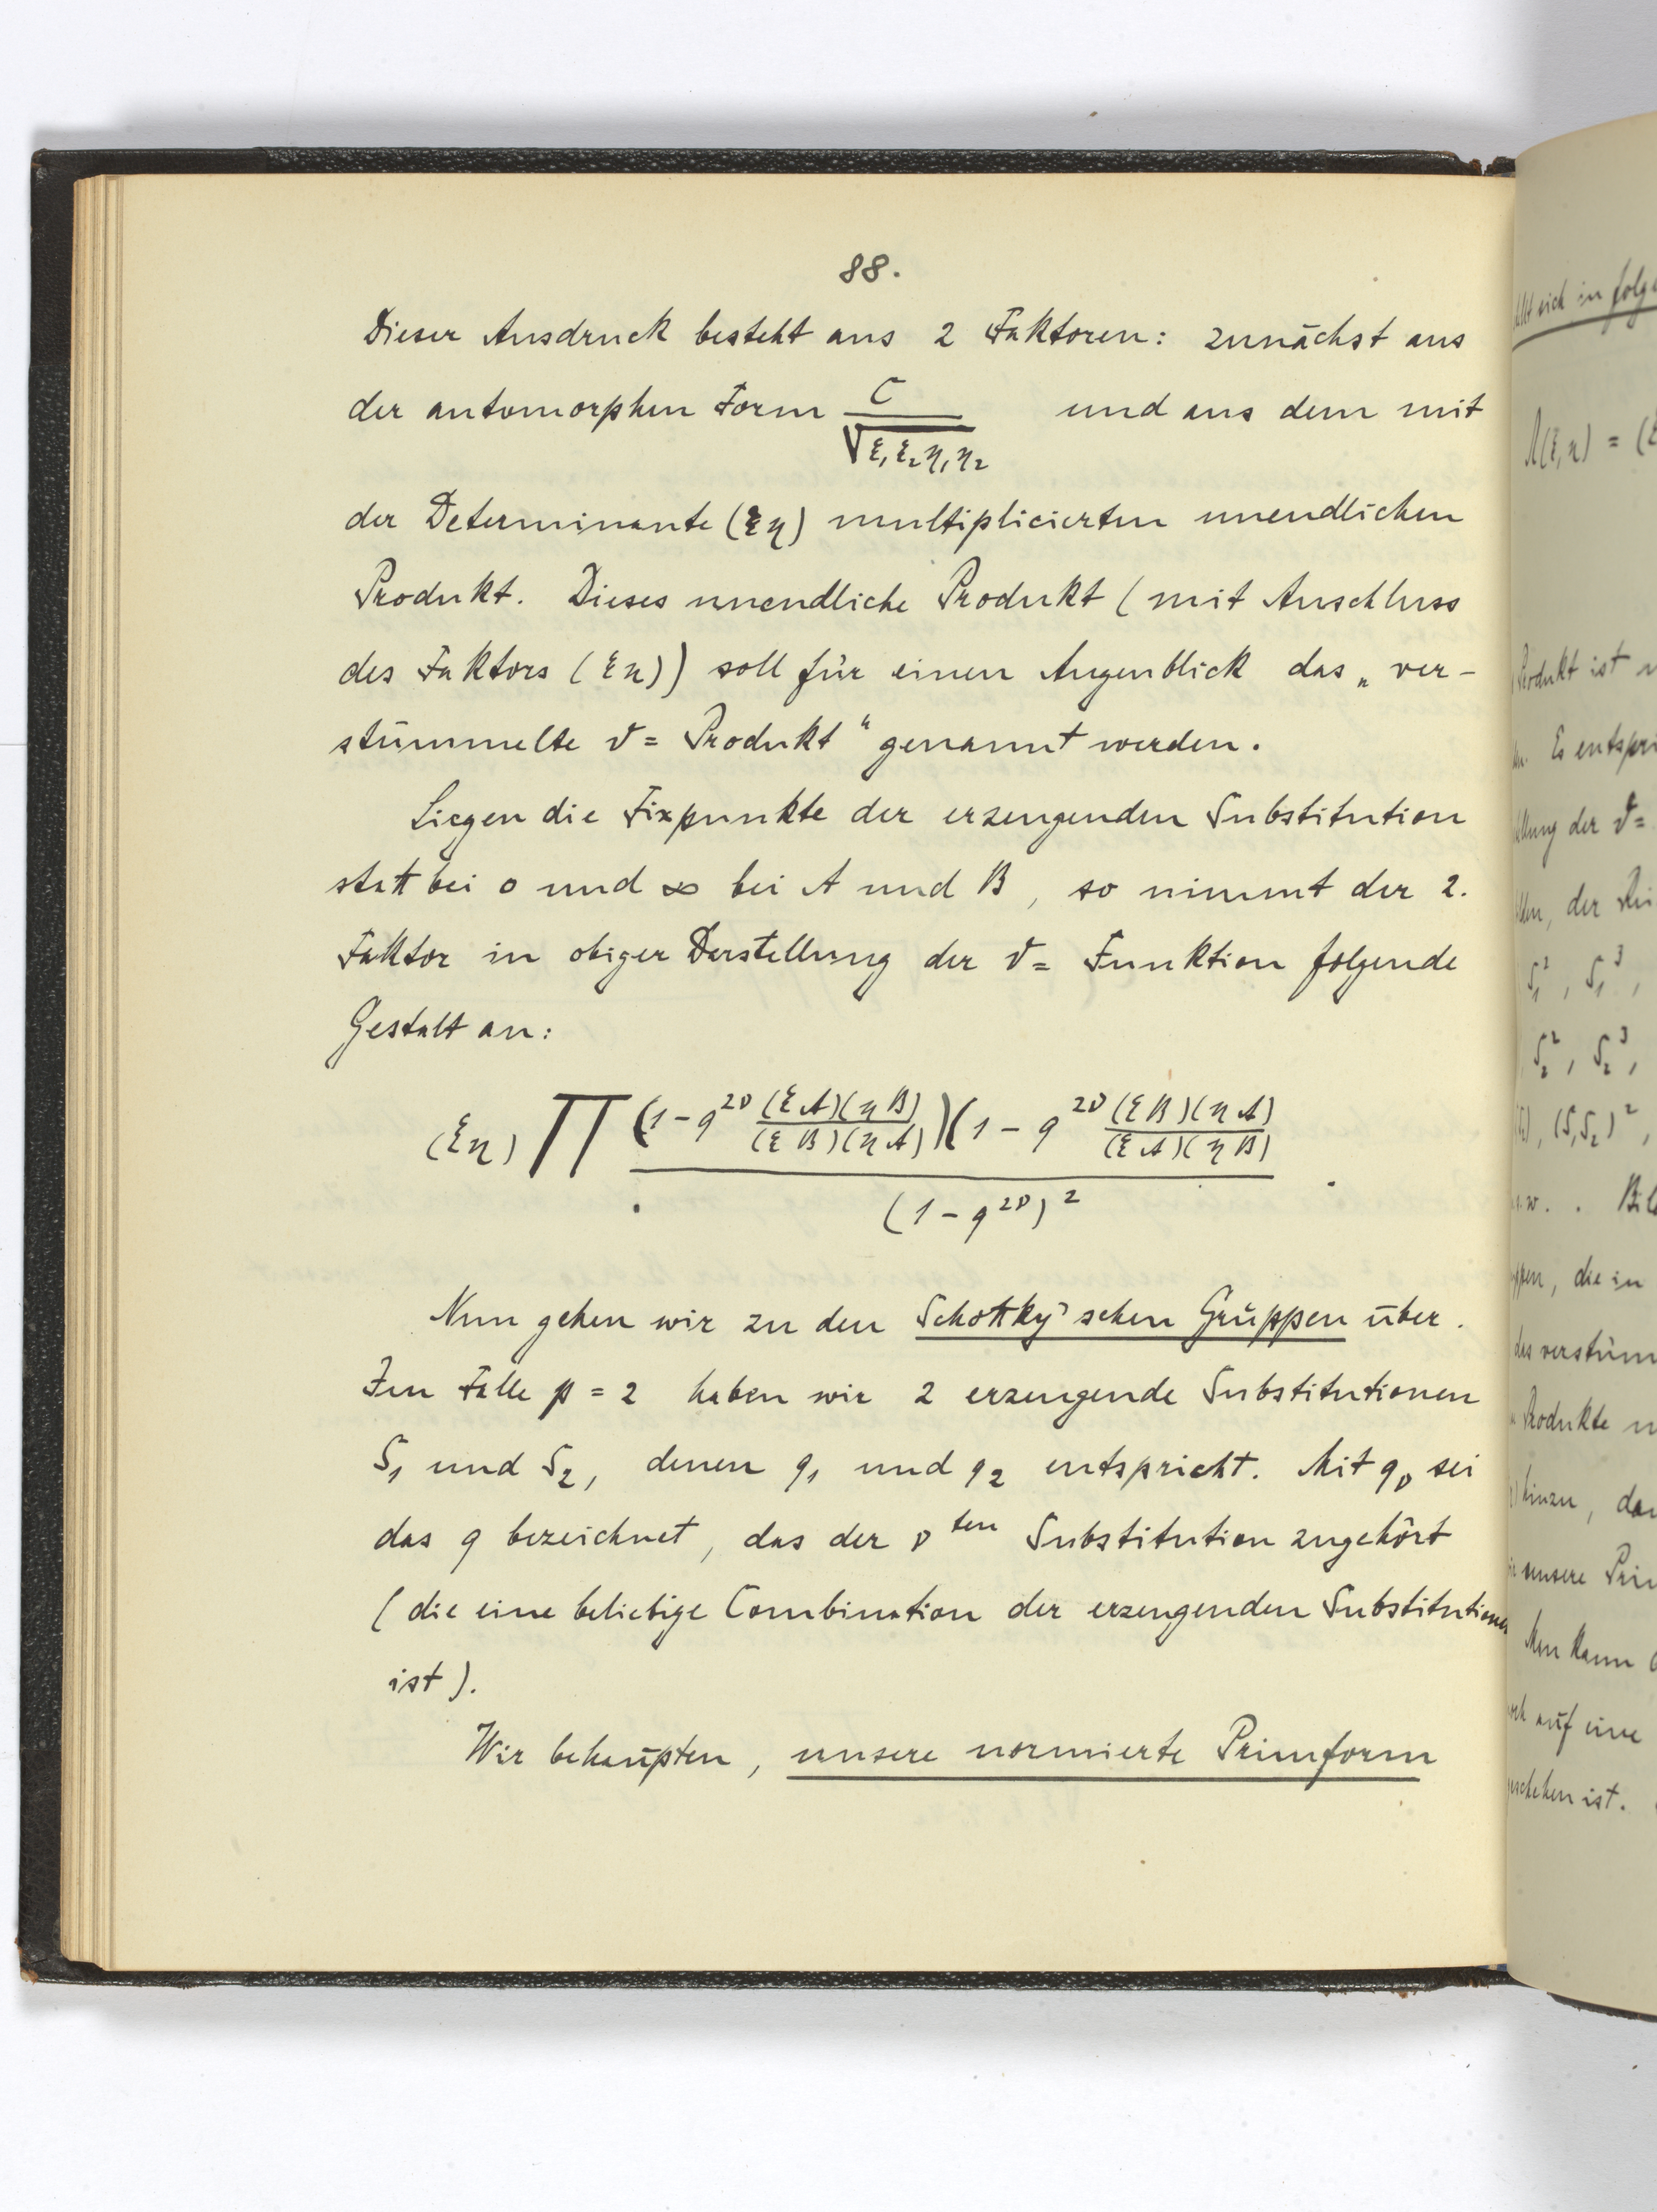 88.
Dieser Ausdruck besteht aus 2 Faktoren: zunächst aus
der automorphen Form C/√(ξ₁ξ₂η₁η₂) und aus dem mit
der Determinante (ξη) multiplicierten unendlichen
Produkt. Dieses unendliche Produkt (mit Anschluss
des Faktors (ξη)) soll für einen Augenblick das „ver-
stümmelte ϑ= Produkt“ genannt werden.
Liegen die Fixpunkte der erzeugenden Substitution
statt bei 0 und ∞ bei A und B, so nimmt der 2.
Faktor in obiger Darstellung der ϑ= Funktion folgende
Gestalt an:
(ξη) ∏ (1-q^{2ν} (ξA)(ηB)/(ξB)(ηA))(1-q^{2ν} (ξB)(ηA)/(ξA)(ηB)) / (1-q^{2ν})² .
Nun gehen wir zu den Schottky'schen Gruppen über.
Im Falle p = 2 haben wir 2 erzeugende Substitutionen
S₁ und S₂, denen q₁ und q₂ entspricht. Mit q_ν sei
das q bezeichnet, das der ν^{ten} Substitution zugehört
(die eine beliebige Combination der erzeugenden Substitutionen
ist).
Wir behaupten, unsere normierte Primform
sich in folge
Λ(ξ,η) = (ξ
Produkt ist
Es entspri
der ϑ=
der
S₁², S₁³,
S₂², S₂³,
, (S₁S₂)²,
, die in
das verstüm
Produkte
hinzu,
unsere Prim
Man kann
auf eine
geschehen ist.